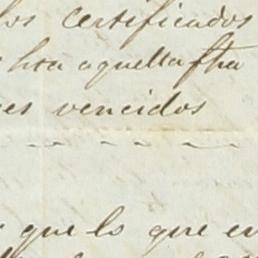 los certificados
hta aquella fha
es vencidos
que lo que en